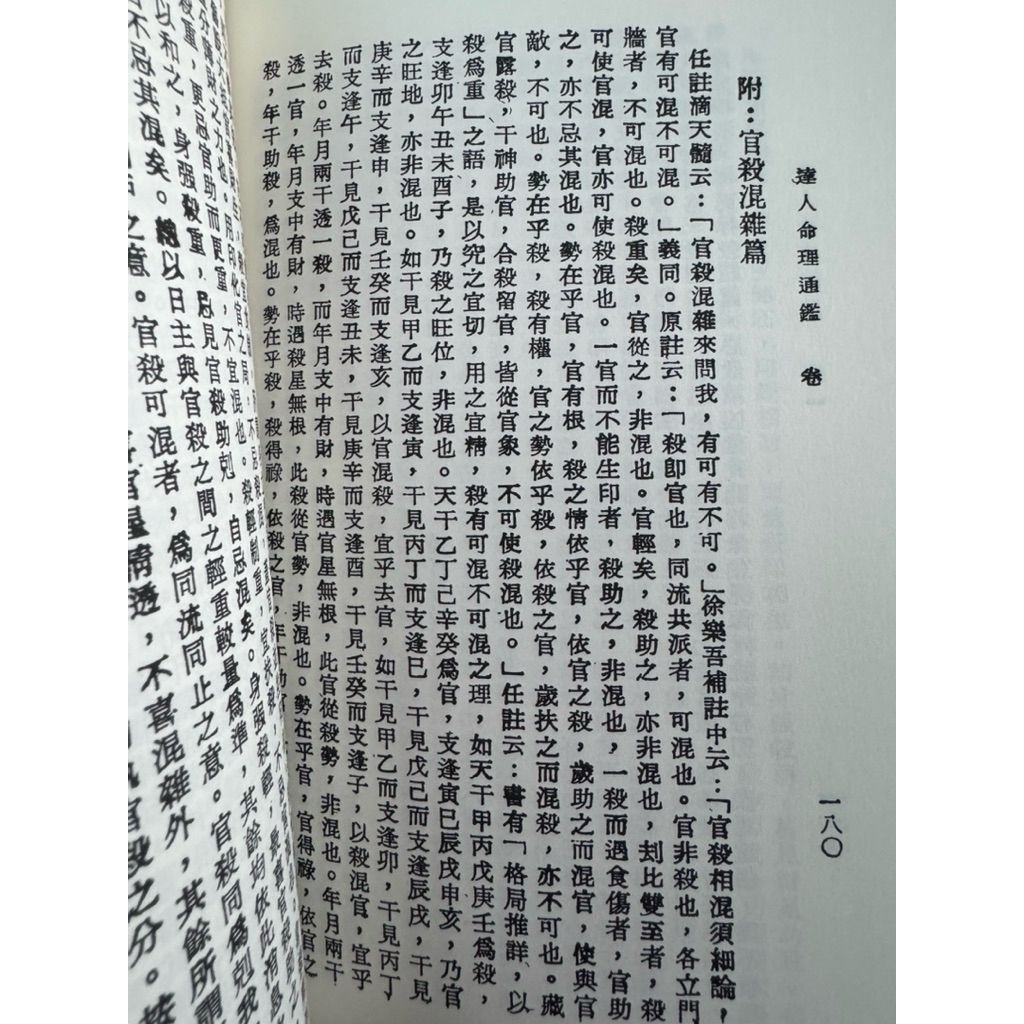 達人命理通鑑　卷一
一八〇
附：官殺混雜篇
任註滴天髓云：「官殺混雜來問我，有可有不可。」徐樂吾補註中云：「官殺相混須細論，
官有可混不可混。」義同。原註云：「殺卽官也，同流共派者，可混也。官非殺也，各立門
牆者，不可混也。殺重矣，官從之，非混也。官輕矣，殺助之，亦非混也，刦比雙至者，殺
可使官混，官亦可使殺混也。一官而不能生印者，殺助之，非混也，一殺而遇食傷者，官助
之，亦不忌其混也。勢在乎官，官有根，殺之情依乎官，依官之殺，歲助之而混官，使與官
敵，不可也。勢在乎殺，殺有權，官之勢依乎殺，依殺之官，歲扶之而混殺，亦不可也。藏
官露殺，干神助官，合殺留官，皆從官象，不可使殺混也。」任註云：書有「格局推詳，以
殺爲重」之語，是以究之宜切，用之宜精，殺有可混不可混之理，如天干甲丙戊庚壬爲殺，
支逢卯午丑未酉子，乃殺之旺位，非混也。天干乙丁己辛癸爲官，支逢寅巳辰戌申亥，乃官
之旺地，亦非混也。如干見甲乙而支逢寅，干見丙丁而支逢巳，干見戊己而支逢辰戌，干見
庚辛而支逢申，干見壬癸而支逢亥，以官混殺，宜乎去官，如干見甲乙而支逢卯，干見丙丁
而支逢午，干見戊己而支逢丑未，干見庚辛而支逢酉，干見壬癸而支逢子，以殺混官，宜乎
去殺。年月兩干透一殺，而年月支中有財，時遇官星無根，此官從殺勢，非混也。年月兩干
透一官，年月支中有財，時遇殺星無根，此殺從官勢，非混也。勢在乎官，官得祿，依官之
殺，年干助殺，爲混也。勢在乎殺，殺得祿，依殺之官，年干助官
不宜混也。殺輕制重，宜扶殺
自忌混矣。身强殺輕
殺重，更忌官助而更重，忌見官殺助剋
以和之，身强殺重
不忌其混矣。總以日主與官殺之間之輕重較量爲準，其餘均依此
之意。官殺可混者，爲同流同止之意。官殺同爲剋我
官星清透，不喜混雜外，其餘所謂
官殺之分。